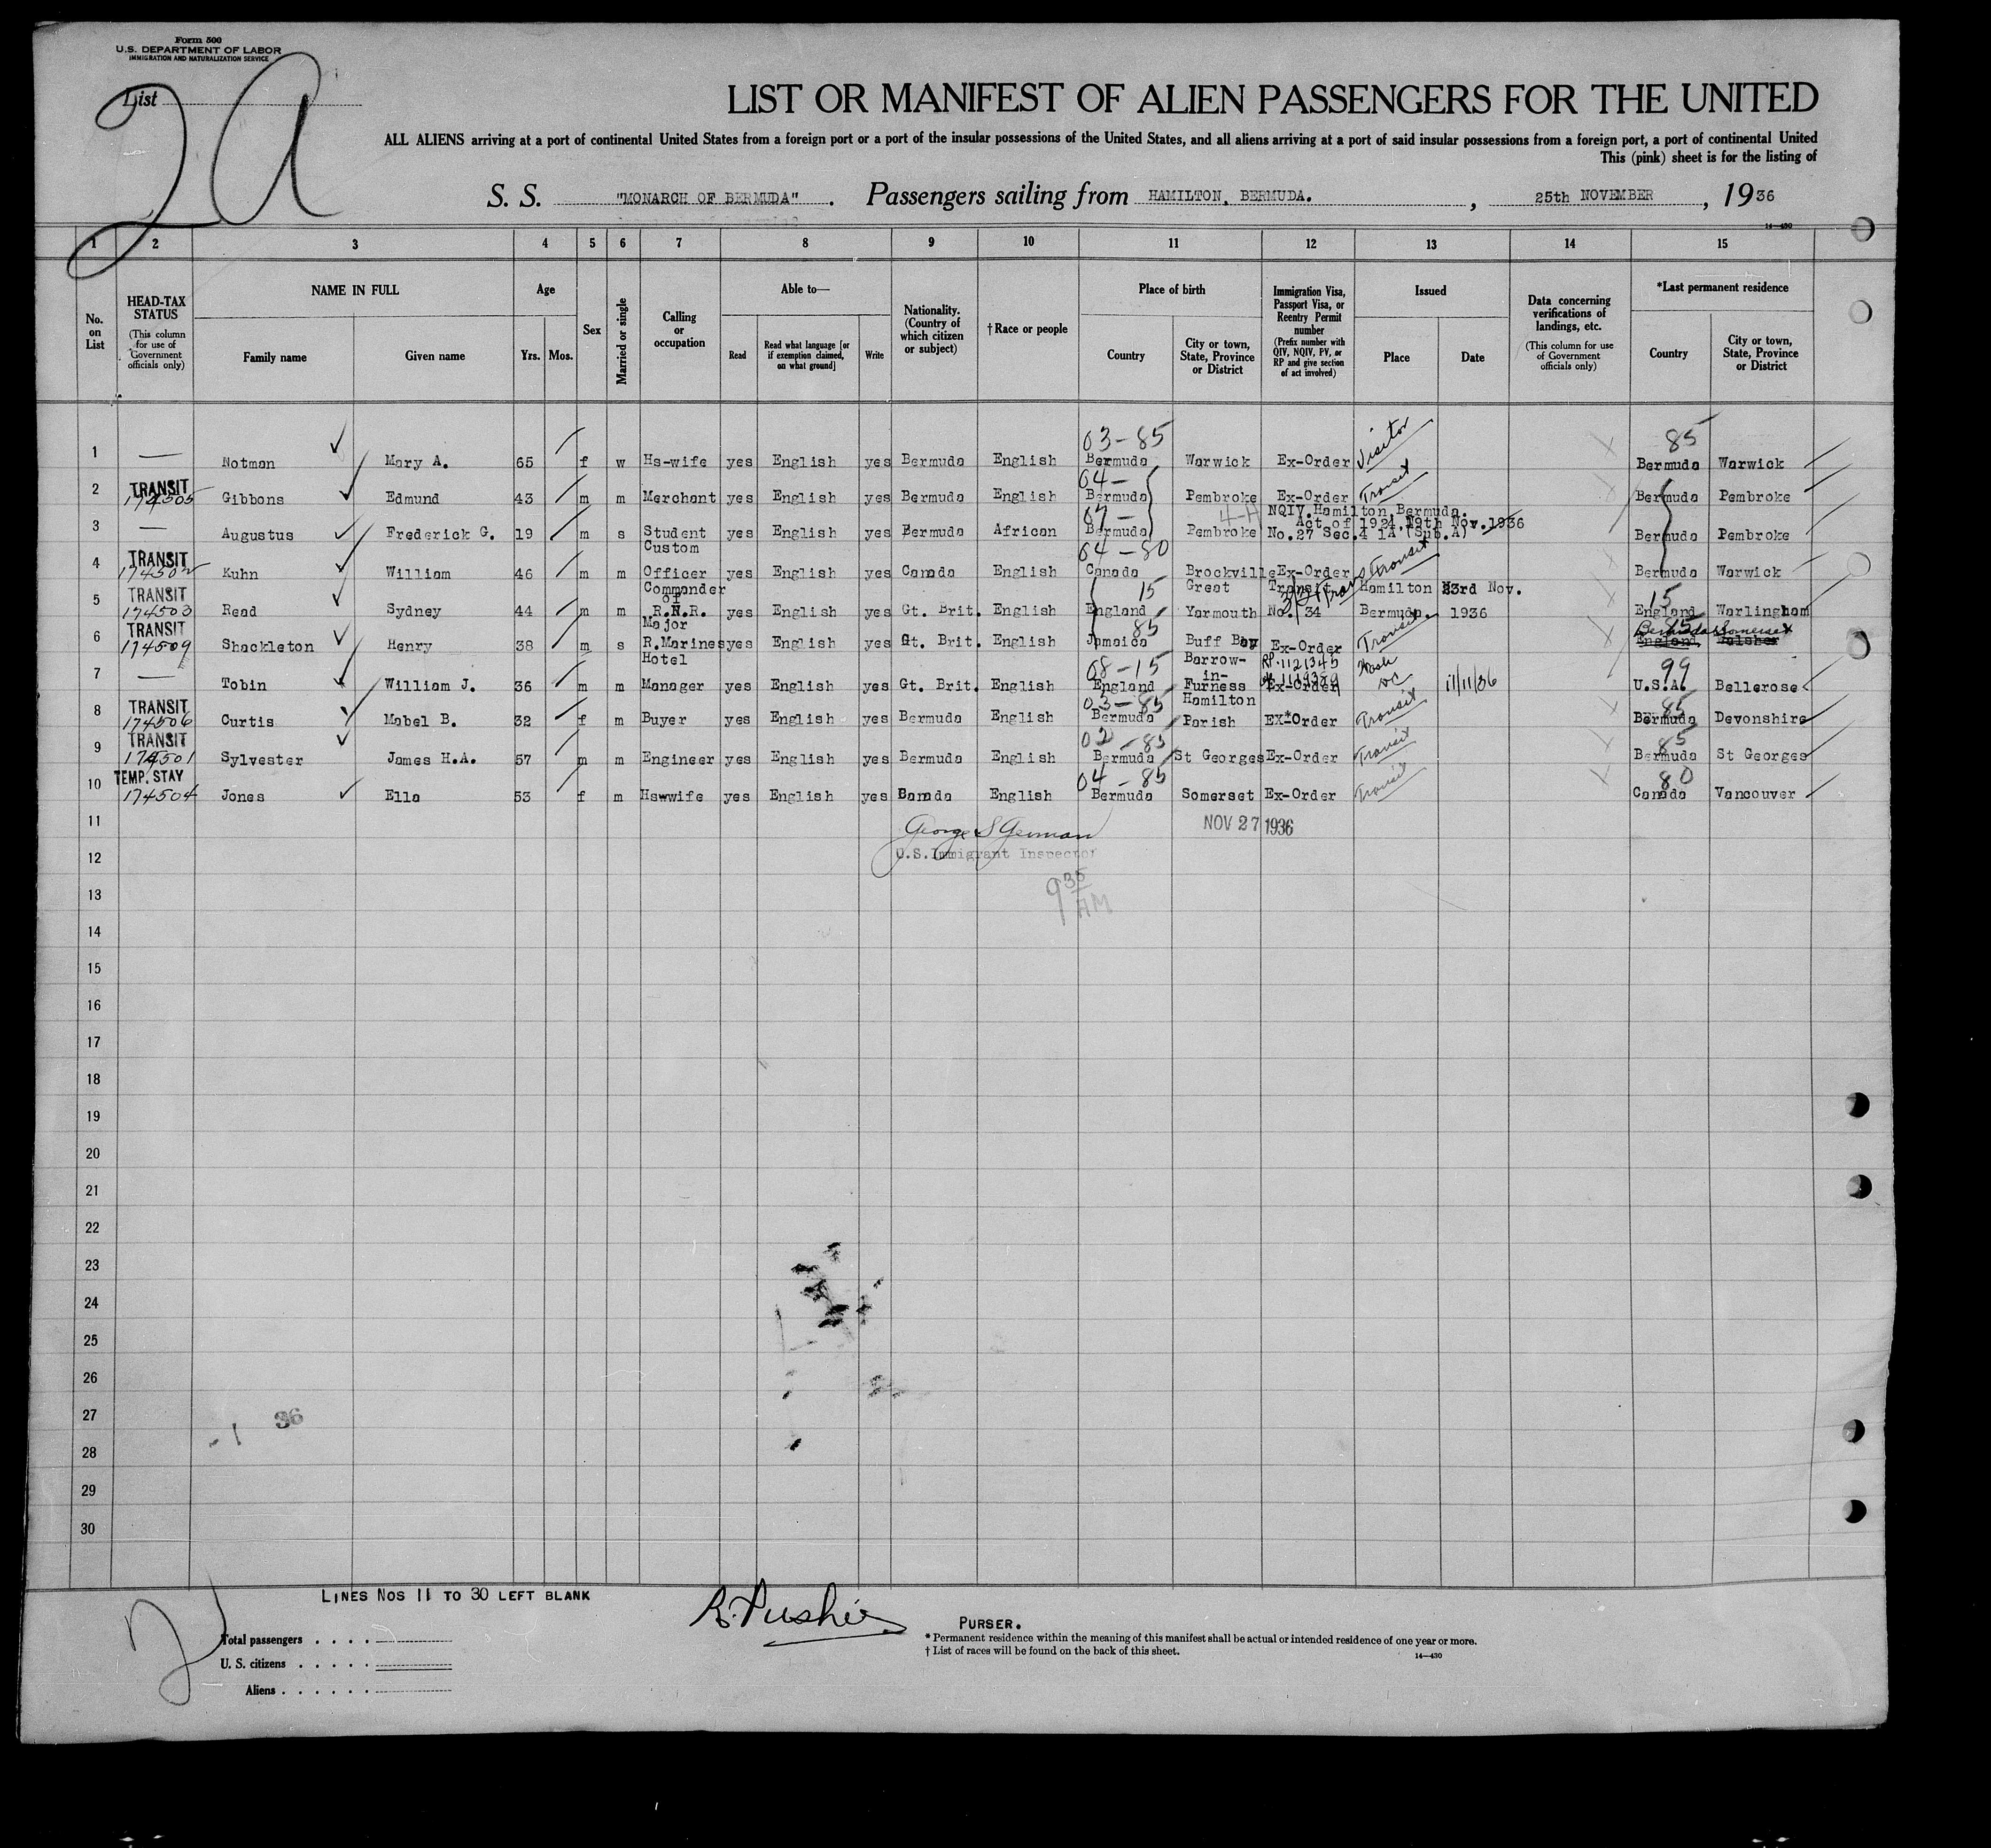 Form 500
U.S. DEPARTMENT OF LABOR
IMMIGRATION AND NATURALIZATION SERVICE
List
2A
LIST OR MANIFEST OF ALIEN PASSENGERS FOR THE UNITED
ALL ALIENS arriving at a port of continental United States from a foreign port or a port of the insular possessions of the United States, and all aliens arriving at a port of said insular possessions from a foreign port, a port of continental United
This (pink) sheet is for the listing of
S. S. "MONARCH OF BERMUDA". Passengers sailing from HAMILTON, BERMUDA. , 25th NOVEMBER , 1936
14—430
1 2 3 4 5 6 7 8 9 10 11 12 13 14 15
No. on List
HEAD-TAX STATUS (This column for use of Government officials only)
NAME IN FULL Family name Given name
Age Yrs. Mos.
Sex
Married or single
Calling or occupation
Able to— Read Read what language [or if exemption claimed, on what ground] Write
Nationality. (Country of which citizen or subject)
† Race or people
Place of birth Country City or town, State, Province or District
Immigration Visa, Passport Visa, or Reentry Permit number (Prefix number with QIV, NQIV, PV, or RP and give section of act involved)
Issued Place Date
Data concerning verifications of landings, etc. (This column for use of Government officials only)
*Last permanent residence Country City or town, State, Province or District
03-85 85
1 — Notman Mary A. 65 f w Hs-wife yes English yes Bermuda English Bermuda Warwick Ex-Order Visitor Bermuda Warwick
TRANSIT 64-
2 174505 Gibbons Edmund 43 m m Merchant yes English yes Bermuda English Bermuda Pembroke Ex-Order Transit Bermuda Pembroke
NQIV. Hamilton Bermuda.
Act of 1924, 19th Nov. 1936
3 — Augustus Frederick G. 19 m s Student yes English yes Bermuda African Bermuda Pembroke 4-H No.27 Sec.4 1A (Sub.A) Bermuda Pembroke
TRANSIT Custom 64-80
4 174502 Kuhn William 46 m m Officer yes English yes Canada English Canada Brockville Ex-Order Transit Bermuda Warwick
TRANSIT Commander of 15 Great Transit Hamilton 23rd Nov. 15
5 174503 Read Sydney 44 m m R.N.R. yes English yes Gt. Brit. English England Yarmouth No. 34 Bermuda. 1936 England Warlingham
TRANSIT Major 85 Bermuda Somerset
6 174509 Shackleton Henry 38 m s R.Marines yes English yes Gt. Brit. English Jamaica Buff Bay Ex-Order Transit England
Hotel 08-15 Barrow-in- RP. 1121345 Wash DC 99
7 — Tobin William J. 36 m m Manager yes English yes Gt. Brit. English England Furness Ex-Order 11/11/36 U.S.A. Bellerose
TRANSIT 03-85 Hamilton 85
8 174506 Curtis Mabel B. 32 f m Buyer yes English yes Bermuda English Bermuda Parish EX*Order Transit Bermuda Devonshire
TRANSIT 02-85 85
9 174501 Sylvester James H.A. 57 m m Engineer yes English yes Bermuda English Bermuda St Georges Ex-Order Transit Bermuda St Georges
TEMP. STAY 04-85 80
10 174504 Jones Ella 53 f m Hswwife yes English yes Canada English Bermuda Somerset Ex-Order Transit Canada Vancouver
11 George S German NOV 27 1936
12 U.S. Immigrant Inspector
13 9 35 AM
14
15
16
17
18
19
20
21
22
23
24
25
26
27 36
28
29
30
LINES NOS 11 TO 30 LEFT BLANK
2
Total passengers
U. S. citizens
Aliens
PURSER.
* Permanent residence within the meaning of this manifest shall be actual or intended residence of one year or more.
† List of races will be found on the back of this sheet.
14—430